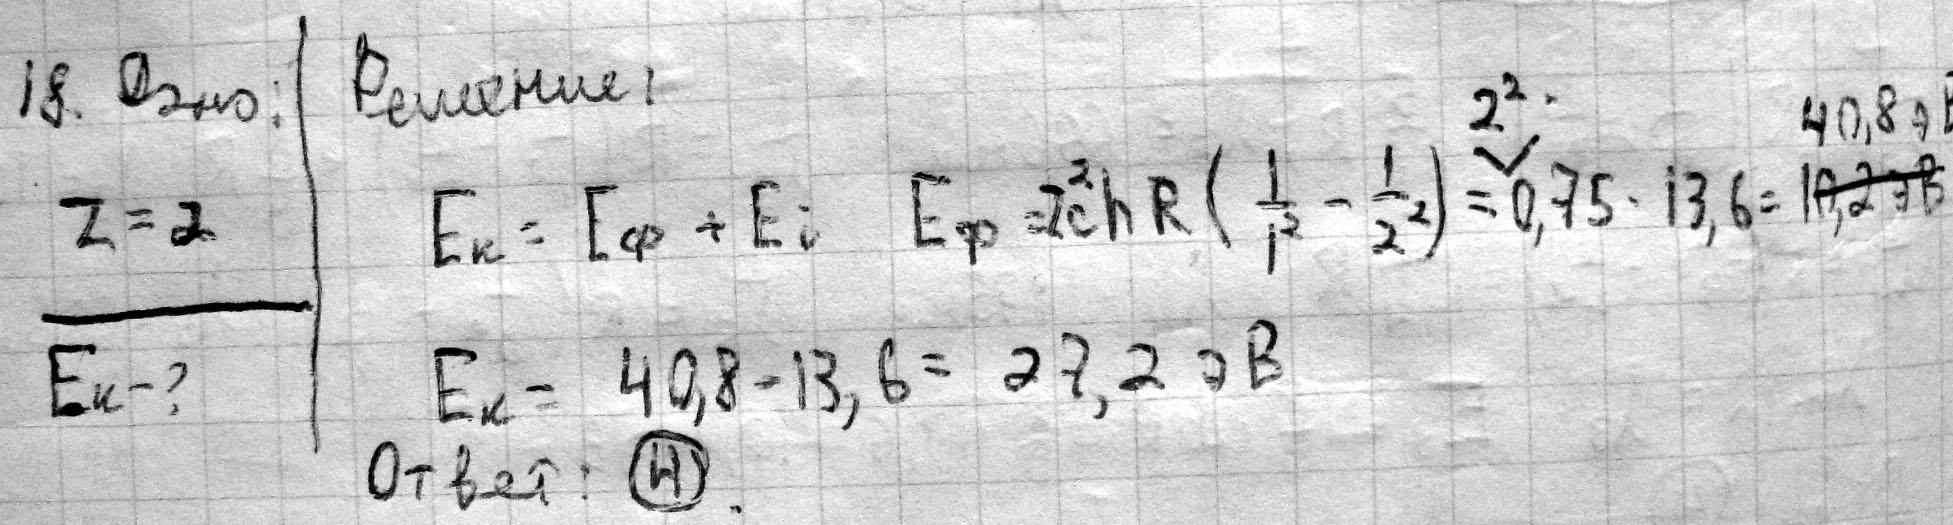 18. Дано: Решение:
Z = 2
Eк = Eф + Ei Eф = Z²chR(1/1² - 1/2²) = 2² · 0,75 · 13,6 = 40,8 эВ
Eк - ?
Eк = 40,8 - 13,6 = 27,2 эВ
Ответ: 4.